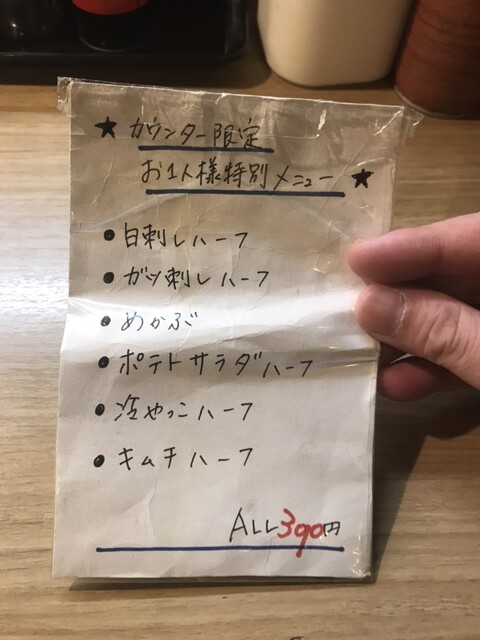 ★カウンター限定
お1人様特別メニュー★
●白刺しハーフ
●ガツ刺しハーフ
●めかぶ
●ポテトサラダハーフ
●冷やっこハーフ
●キムチハーフ
ALL390円